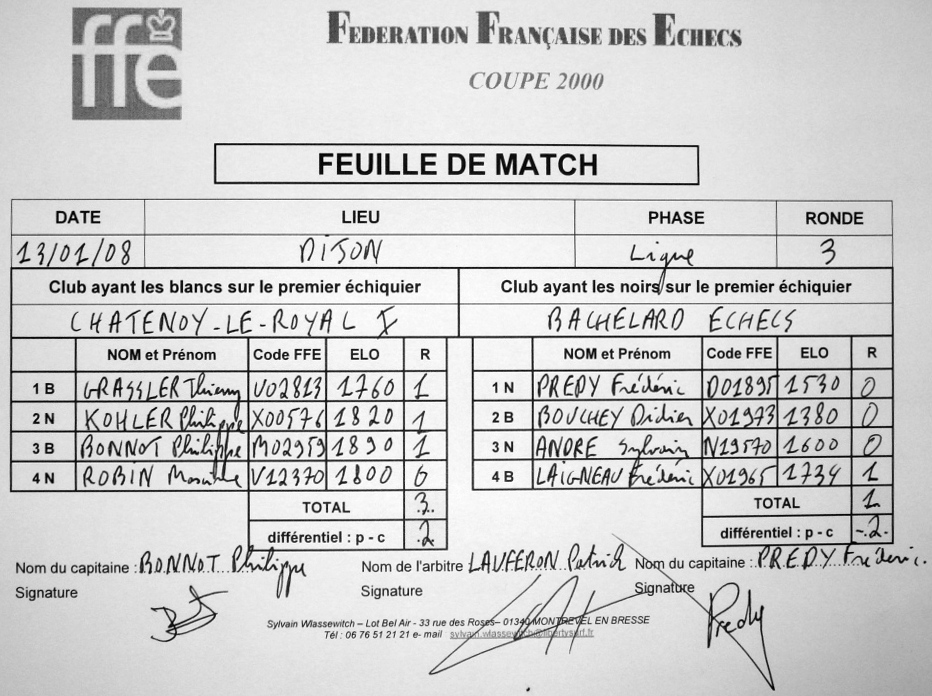 ffe
FEDERATION FRANÇAISE DES ECHECS
COUPE 2000
FEUILLE DE MATCH
DATE LIEU PHASE RONDE
13/01/08 DIJON Ligue 3
Club ayant les blancs sur le premier échiquier Club ayant les noirs sur le premier échiquier
CHATENOY-LE-ROYAL I BACHELARD ECHECS
NOM et Prénom Code FFE ELO R NOM et Prénom Code FFE ELO R
1 B GRASSLER Thierry V02813 1760 1 1 N PREDY Frédéric D01895 1530 0
2 N KOHLER Philippe X00576 1820 1 2 B BOUCHEY Didier X01973 1380 0
3 B BONNOT Philippe M02959 1890 1 3 N ANDRE Sylvain N19570 1600 0
4 N ROBIN V12370 1800 0 4 B LAIGNEAU Frédéric X01965 1734 1
TOTAL 3 TOTAL 1
différentiel : p - c 2 différentiel : p - c -2
Nom du capitaine : BONNOT Philippe Nom de l'arbitre LAUFERON Patrick Nom du capitaine : PREDY Frédéric.
Signature Signature Signature
Predy
Sylvain Wlassewitch – Lot Bel Air - 33 rue des Roses– 01340 MONTREVEL EN BRESSE
Tél : 06 76 51 21 21 e- mail : sylvain.wlassewitch@libertysurf.fr